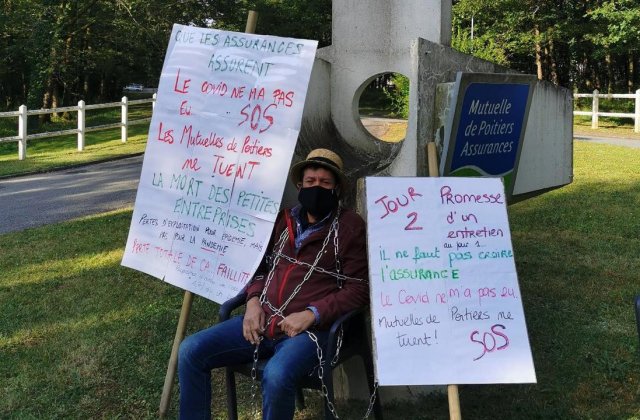 QUE LES ASSURANCES
ASSURENT
LE COVID NE M'A PAS
EU SOS
LES Mutuelles de Poitiers
me TUENT
LA MORT DES PETITES
ENTREPRISES
PERTES D'EXPLOITATION POUR EPIDEMIE MAIS
PAS POUR LA PANDEMIE
PERTE TOTALE DE CA, FAILLITE
Mutuelle
de Poitiers
Assurances
JOUR
2
Promesse
d'un
entretien
au jour 1
IL NE FAUT PAS CROIRE
l'ASSURANCE
le Covid ne m'a pas eu.
Mutuelles de Poitiers me
tuent! SOS